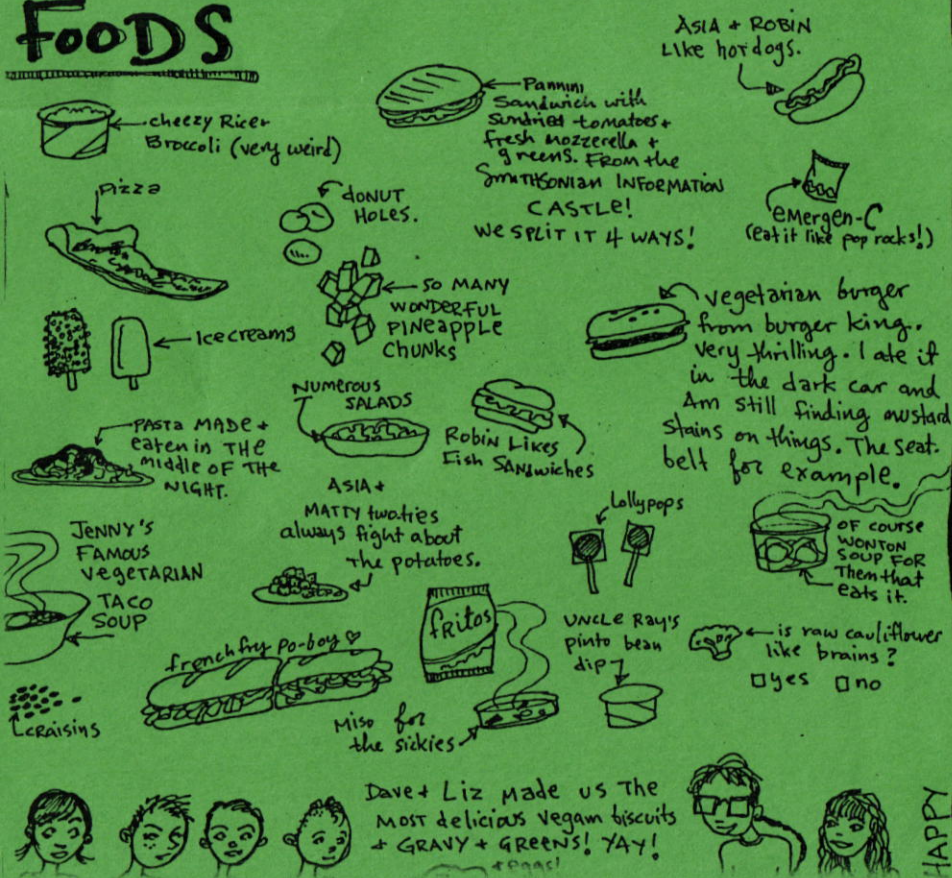 FOODS
cheezy Rice+
Broccoli (very weird)
Pannini
Sandwich with
Sundried tomatoes+
fresh mozzerella +
greens. FROM the
SMITHSONIAN INFORMATION
CASTLE!
WE SPLIT IT 4 WAYS!
ASIA + ROBIN
LIKE hotdogs.
Pizza
DONUT
HOLES.
EMERGEN-C
(eat it like pop rocks!)
Icecreams
SO MANY
WONDERFUL
PINEAPPLE
CHUNKS
vegetarian burger
from burger king..
very thrilling. I ate it
in the dark car and
Am still finding mustard
stains on things. The seat-
belt for example.
PASTA MADE +
eaten in THE
Middle OF THE
NIGHT.
NUMEROUS
SALADS
Robin Likes
Fish SANdwiches
JENNY'S
FAMOUS
VEGETARIAN
TACO
SOUP
ASIA +
MATTY two-ties
always fight about
the potatoes.
Lollypops
OF COURSE
WONTON
SOUP FOR
Them that
eats it.
frenchfry po-boy ♡
fritos
UNCLE RAY'S
pinto bean
dip
is raw cauliflower
like brains?
□ yes □ no
craisins
MISO for
the sickies
Dave + Liz made us the
MOST delicious vegan biscuits
+ GRAVY + GREENS! YAY!
+ eggs!
HAPPY